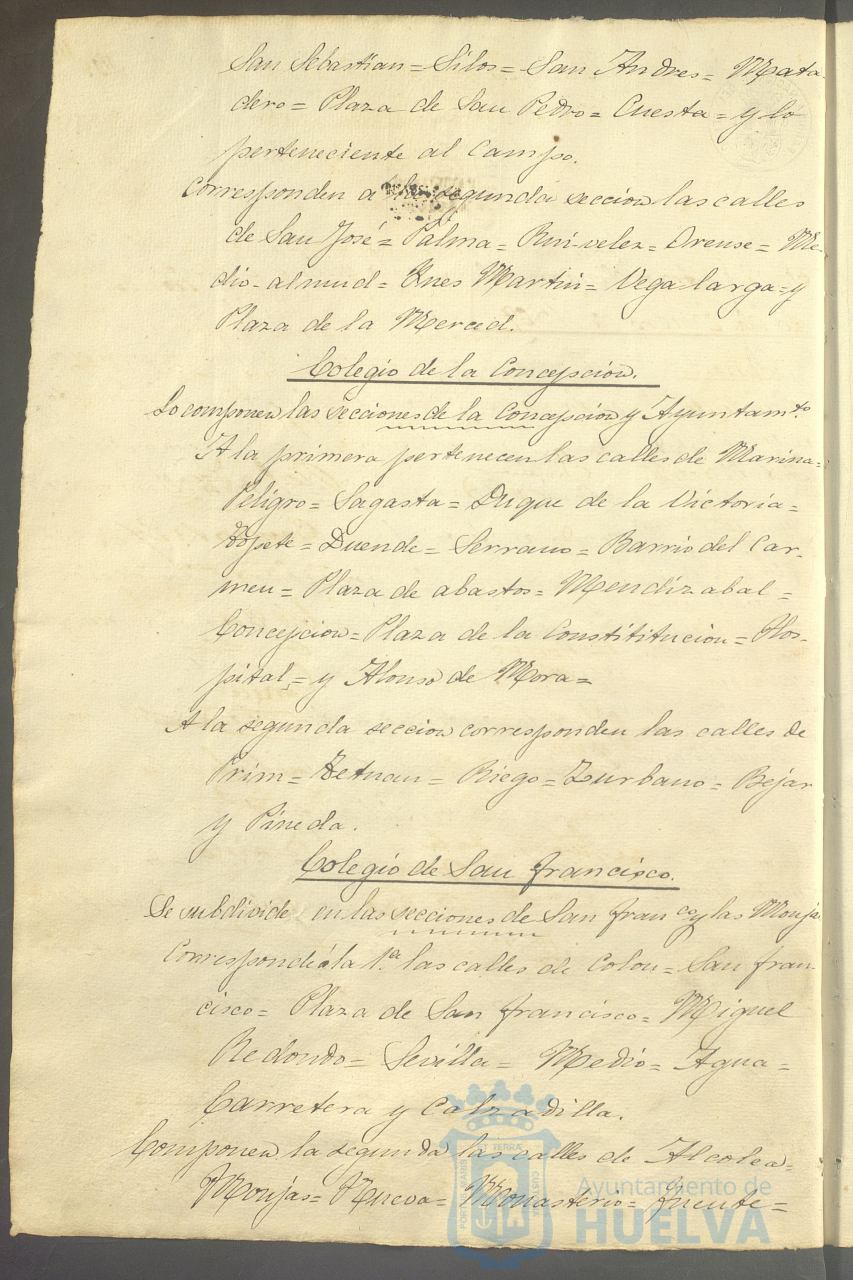 San Sebastian = Silos = San Andres = Mata-
dero = Plaza de San Pedro = Cuesta = y lo
perteneciente al Campo.
Corresponden a la segunda seccion las calles
de San José = Palma = Rui-velez = Orense = Me-
dio-almud = Ynes Martin = Vega larga = y
Plaza de la Merced.
Colegio de la Concepcion.
Lo componen las secciones de la Concepcion y Ayuntamto.
A la primera pertenecen las calles de Marina =
Peligro = Sagasta = Duque de la Victoria =
Topete = Duende = Serrano = Barrio del Car-
men = Plaza de abastos = Mendizabal =
Concepcion = Plaza de la Constititucion = Hos-
pital = y Alonso de Mora =
A la segunda seccion corresponden las calles de
Prim = Tetuan = Riego = Zurbano = Bejar
y Pineda.
Colegio de San Francisco.
Se subdivide en las secciones de San Franco y las Monjas
Corresponde á la 1ª. las calles de Colon = San Fran-
cisco = Plaza de San Francisco = Miguel
Redondo = Sevilla = Medio = Agua =
Carretera y Calzadilla.
Componen la segunda las calles de Alcolea =
Monjas = Nueva = Monasterio = Fuente =
Ayuntamiento de
HUELVA